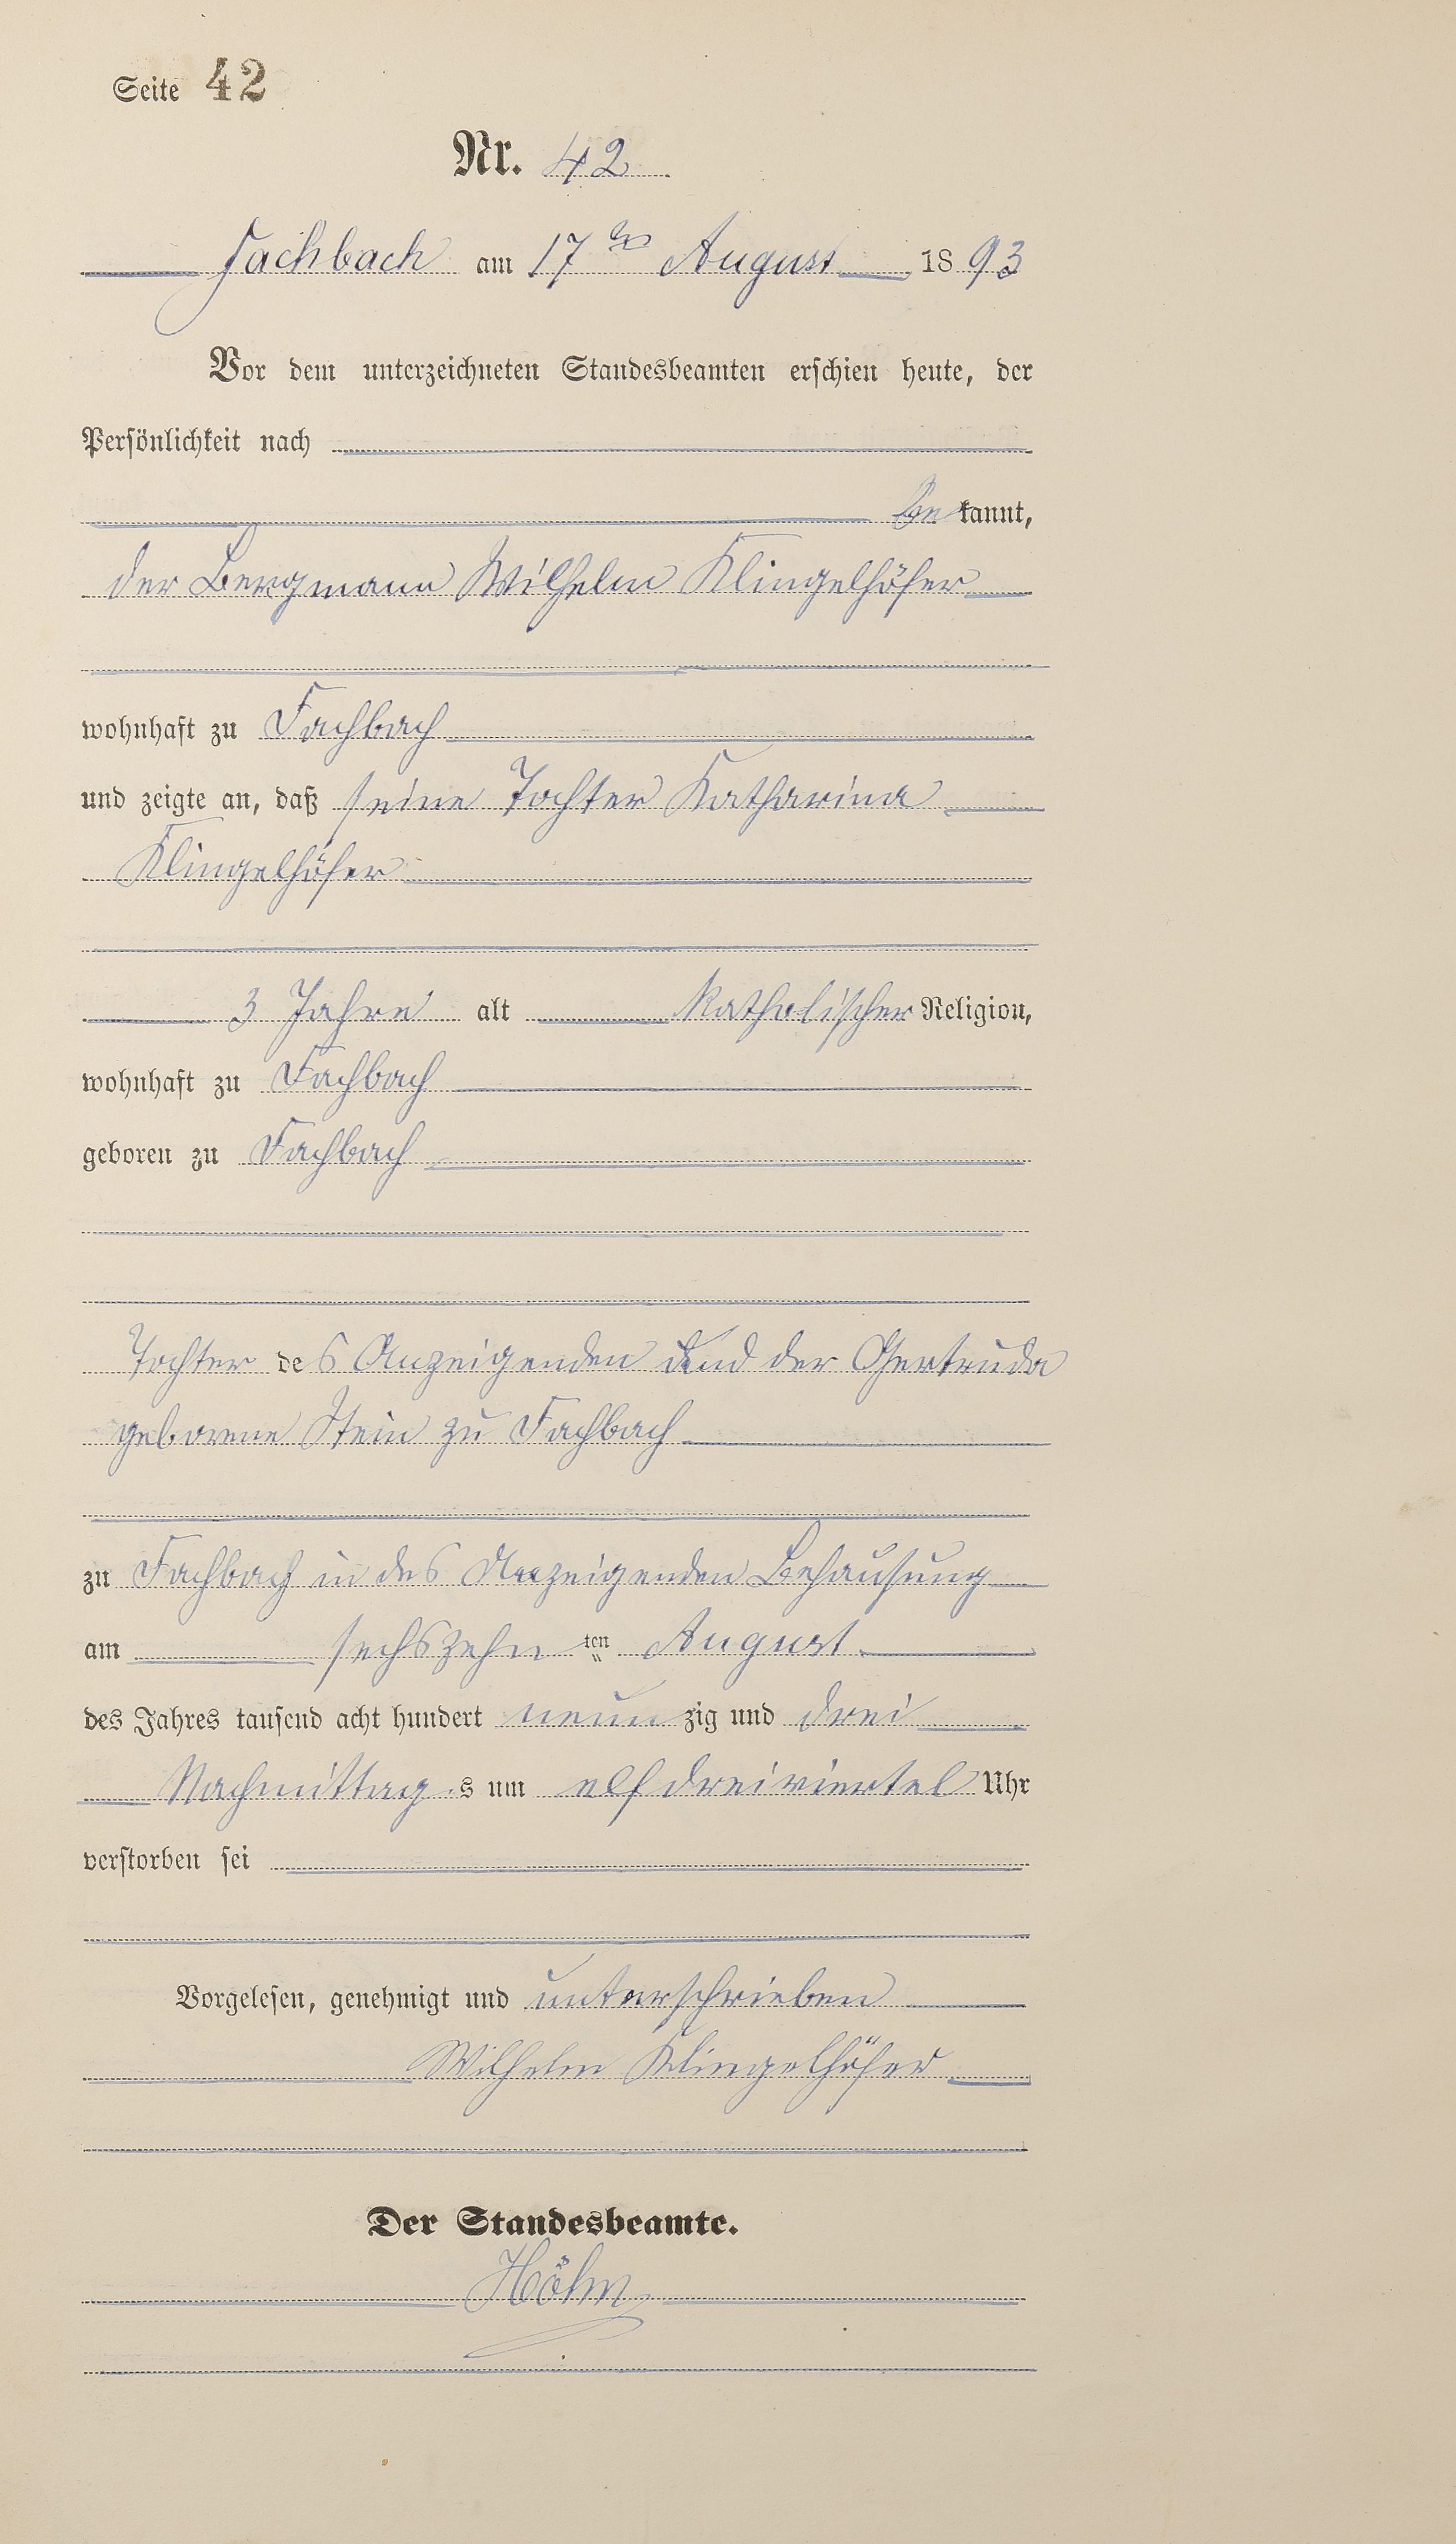 Seite 42
Nr. 42
Fachbach am 17ten August 1893
Vor dem unterzeichneten Standesbeamten erschien heute, der
Persönlichkeit nach
bekannt,
der Bergmann Wilhelm Klingelhöfer
wohnhaft zu Fachbach
und zeigte an, daß seine Tochter Katharina
Klingelhöfer
3 Jahre alt katholischer Religion,
wohnhaft zu Fachbach
geboren zu Fachbach
Tochter des Anzeigenden und der Gertruda
geborene Stein zu Fachbach
zu Fachbach in des Anzeigenden Behausung
am sechszehn ten August
des Jahres tausend acht hundert neunzig und drei
Nachmittags um elf dreiviertel Uhr
verstorben sei
Vorgelesen, genehmigt und unterschrieben
Wilhelm Klingelhöfer
Der Standesbeamte.
Höhn